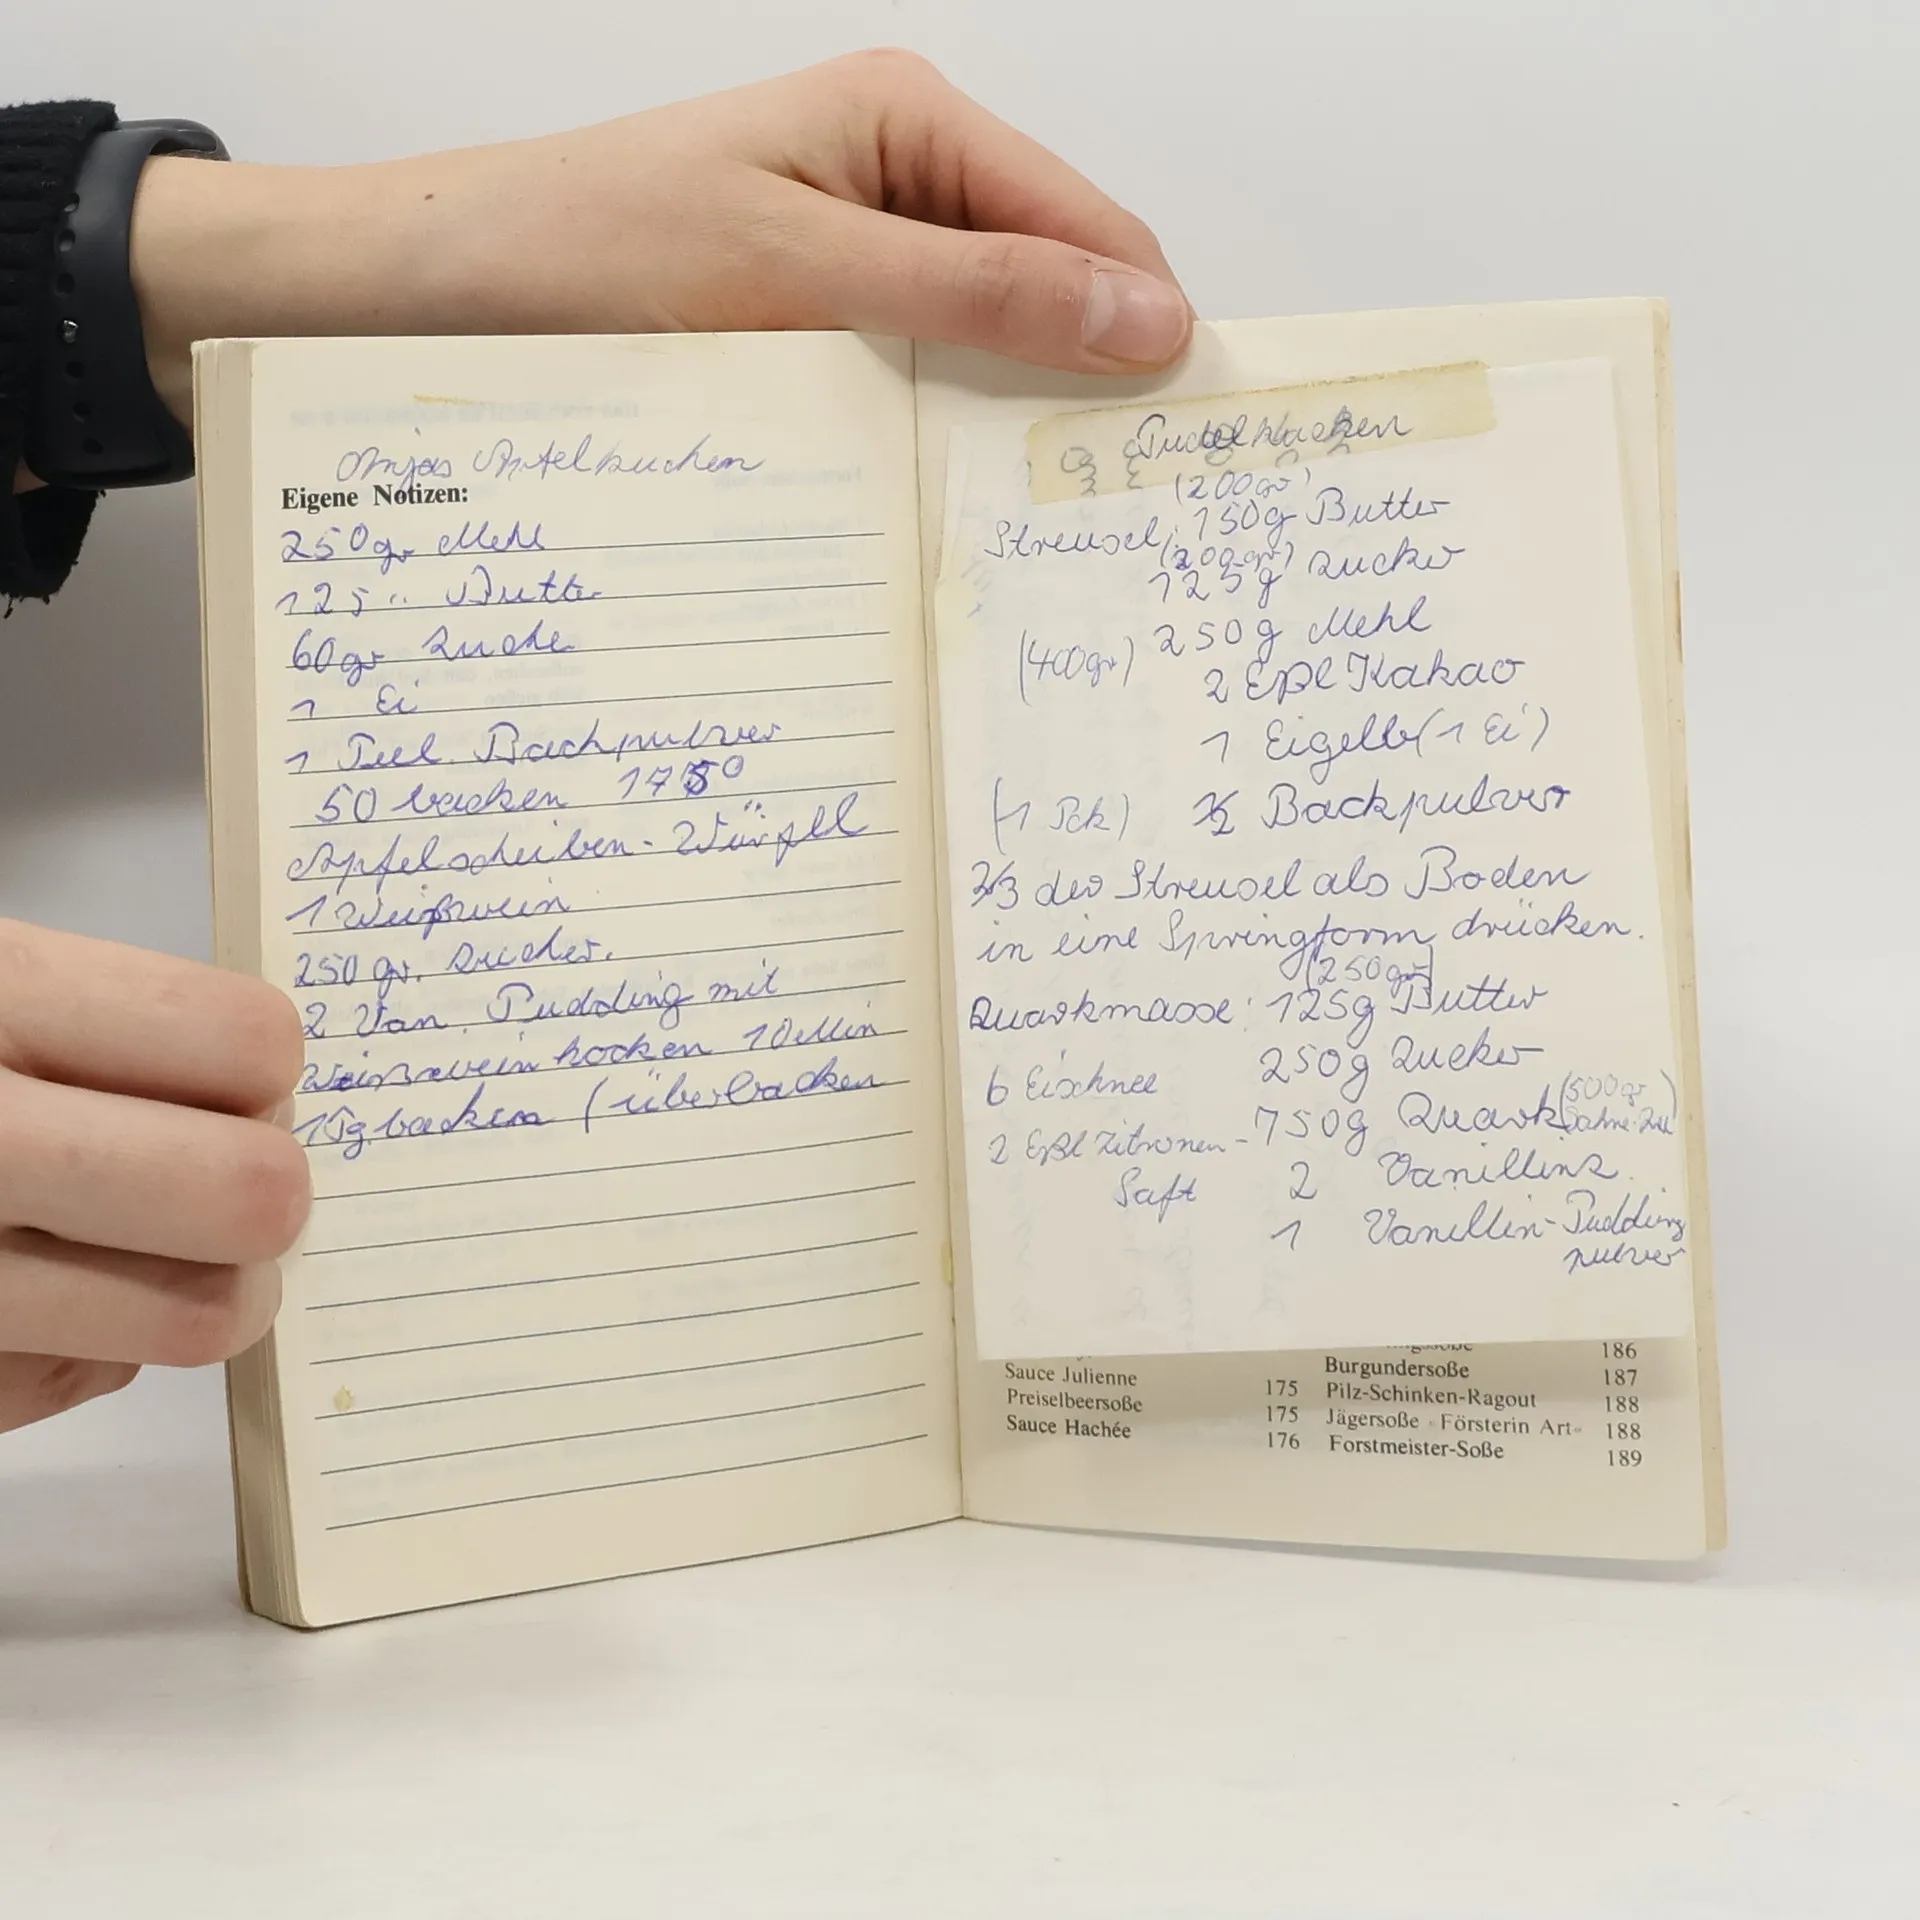 Anjas Apfelkuchen
Eigene Notizen:
250 gr Mehl
125 " Butter
60 gr Zucker
1 Ei
1 Teel. Backpulver
50 backen 175°
Apfelscheiben - Würfel
1 Weißwein
250 gr. Zucker.
2 Van. Pudding mit
Weißwein kochen 10 Min
1 Tg. backen (überbacken
(200gr)
Streusel: 150g Butter
(200gr)
125g Zucker
(400gr) 250g Mehl
2 Eßl Kakao
1 Eigelb (1 Ei)
(1 Pck) ½ Backpulver
2/3 der Streusel als Boden
in eine Springform drücken.
(250gr)
Quarkmasse: 125g Butter
6 Eischnee 250g Zucker
2 Eßl Zitronen-Saft 750g Quark (500gr
2 Vanillinz.
1 Vanillin-Pudding
pulver
186
Sauce Julienne 175
Preiselbeersoße 175
Sauce Hachée 176
Burgundersoße 187
Pilz-Schinken-Ragout 188
Jägersoße »Försterin Art« 188
Forstmeister-Soße 189